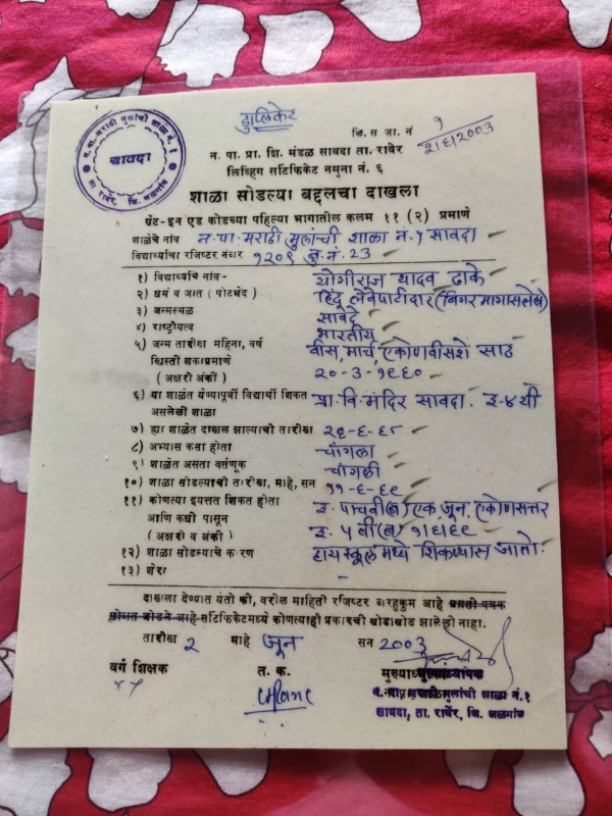 डुप्लिकेट
न. पा. मराठी मुलांची शाळा नं. १
सावदा
ता. रावेर, जि. जळगांव
जि. स जा. नं १
२/६/2003
न. पा. प्रा. शि. मंडळ सावदा ता. रावेर
लिव्हिंग सर्टिफिकेट नमुना नं. ६
शाळा सोडल्या बद्दलचा दाखला
ग्रँट-इन एड कोडच्या पहिल्या भागातील कलम ११ (२) प्रमाणे
शाळेचे नांव न. पा. मराठी मुलांची शाळा नं. १ सावदा
विद्यार्थ्याचा रजिष्टर नंबर १२०९ जु. नं. 23
१) विद्यार्थ्याचे नांव- योगीराज यादव ढाके
२) धर्म व जात (पोटभेद) हिंदू लेवेपाटीदार (बिगर मागासलेले)
३) जन्मस्थळ सावदे
४) राष्ट्रीयत्व भारतीय
५) जन्म तारीख महिना, वर्ष वीस, मार्च एकोणवीसशे साठ
ख्रिस्ती शकाप्रमाणे २०-३-१९६०
(अक्षरी अंकी)
६) या शाळेत येण्यापूर्वी विद्यार्थी शिकत प्रा. वि. मंदिर सावदा. इ-४ थी
असलेली शाळा
७) ह्या शाळेत दाखल झाल्याची तारीख
८) अभ्यास कसा होता चांगला
९) शाळेत असता वर्तणूक चांगली
१०) शाळा सोडल्याची तारीख, माहे, सन ११-६-६९
११) कोणत्या इयत्तेत शिकत होता इ. पाचवी (ब) एक जून, एकोणसत्तर
आणि कधी पासून इ. ५ वी (ब) १/६/६९
(अक्षरी व अंकी)
१२) शाळा सोडल्याचे कारण हायस्कूल मध्ये शिकण्यास जातो.
१३) शेरा -
दाखला देण्यात येतो की, वरील माहिती रजिष्टर बरहुकुम आहे
सर्टिफिकेटमध्ये कोणत्याही प्रकारची खोडाखोड झालेली नाही.
तारीख २ माहे जून सन 2003
वर्ग शिक्षक त. क. मुख्याध्यापक
न. पा. मराठी मुलांची शाळा नं. १
सावदा, ता. रावेर, जि. जळगांव